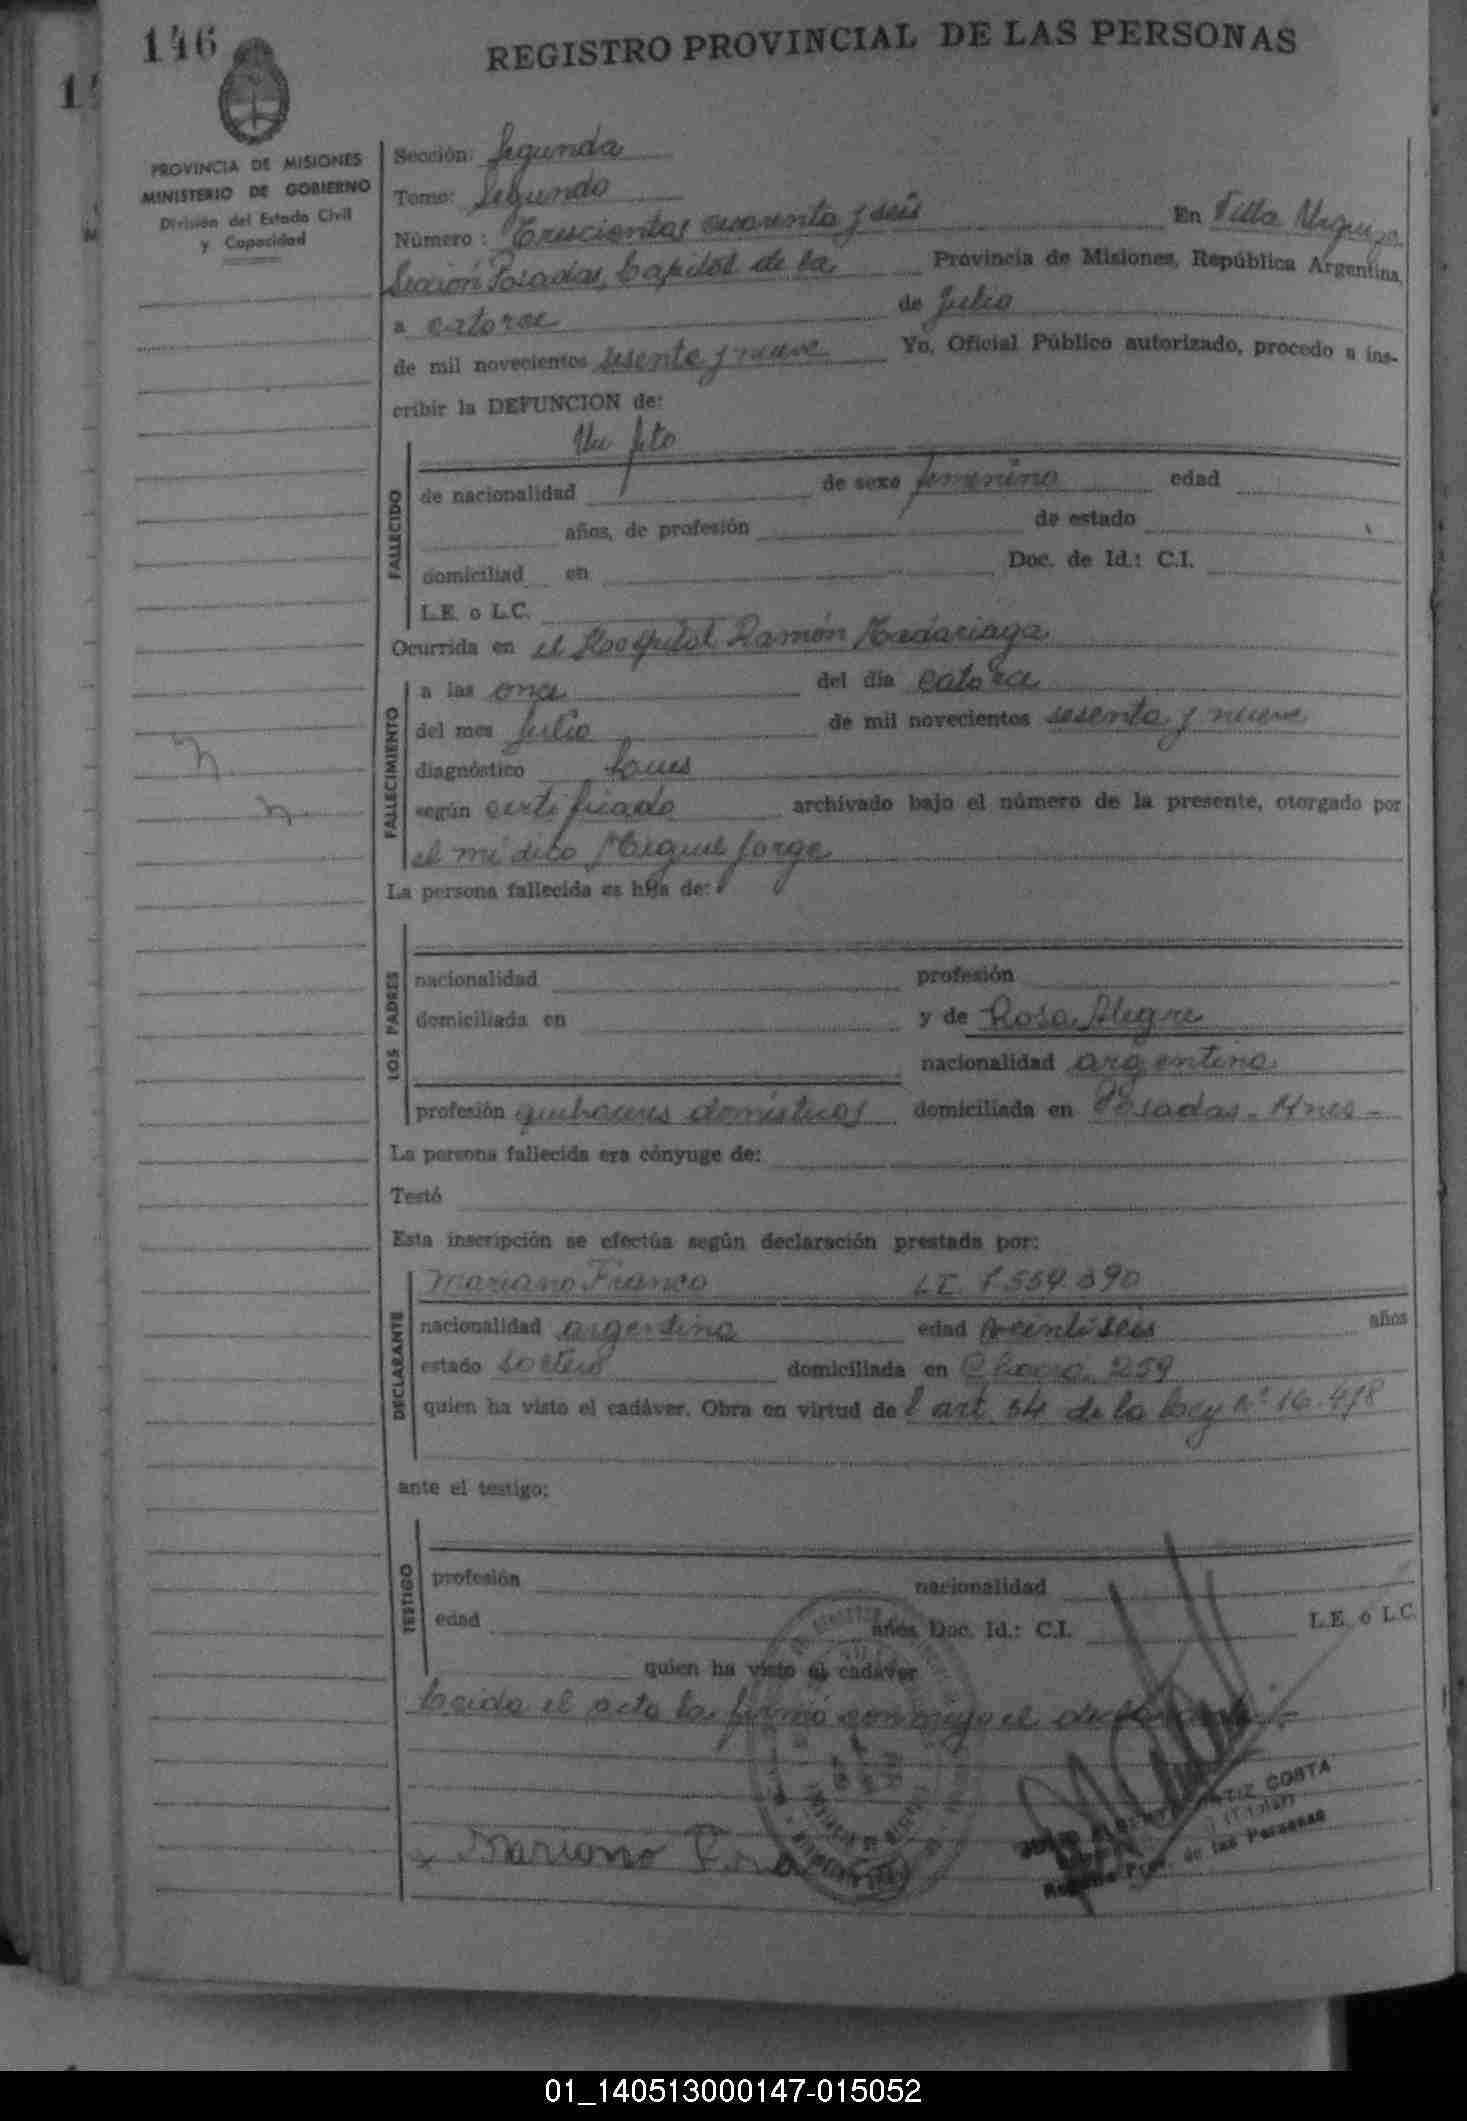 146
REGISTRO PROVINCIAL DE LAS PERSONAS
PROVINCIA DE MISIONES
MINISTERIO DE GOBIERNO
División del Estado Civil
y Capacidad
Sección: Segunda
Tomo: Segundo
Número: Trescientos cuarenta y seis En Villa Urquiza
Sección Posadas, Capital de la Provincia de Misiones, República Argentina,
a catorce de Julio
de mil novecientos sesenta y nueve Yo, Oficial Público autorizado, procedo a ins-
cribir la DEFUNCION de:
Un feto
FALLECIDO
de nacionalidad de sexo femenino edad
años, de profesión de estado
domiciliad en Doc. de Id.: C.I.
L.E. o L.C.
Ocurrida en el Hospital Ramón Madariaga
FALLECIMIENTO
a las once del día catorce
del mes Julio de mil novecientos sesenta y nueve
diagnóstico Lues
según certificado archivado bajo el número de la presente, otorgado por
el médico Miguel Jorge
La persona fallecida es hija de:
LOS PADRES
nacionalidad profesión
domiciliada en y de Rosa Alegre
nacionalidad argentina
profesión quehaceres domésticos domiciliada en Posadas - Mnes -
La persona fallecida era cónyuge de:
Testó
Esta inscripción se efectúa según declaración prestada por:
DECLARANTE
Mariano Franco L E 7.559.390
nacionalidad argentina edad veintiseis años
estado soltero domiciliada en Chaco 259
quien ha visto el cadáver. Obra en virtud del art. 54 de la Ley Nº 16.478
ante el testigo:
TESTIGO
profesión nacionalidad
edad años Doc. Id.: C.I. L.E. ó L.C.
quien ha visto el cadáver
Leida el acta la firmó conmigo el
ORTIZ COSTA
(Titular)
Registro Prov. de las Personas
Mariano
01_140513000147-015052